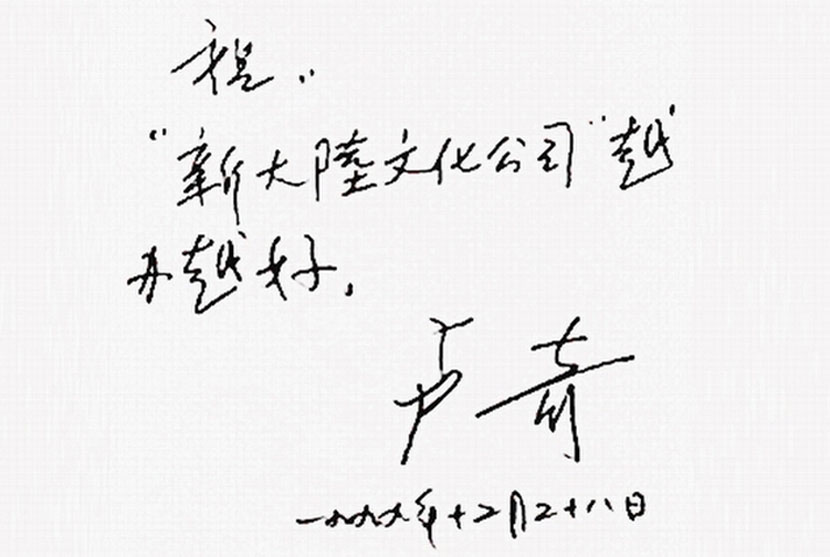 祝：
“新大陸文化公司”越
办越好，
卢奇
一九九六年十二月二十八日